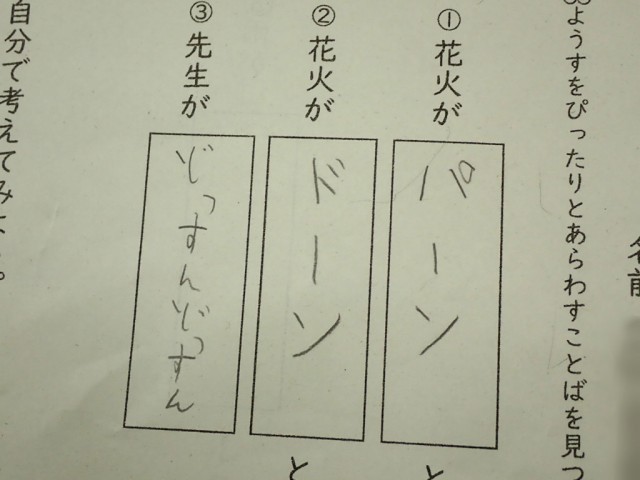 名前
ようすをぴったりとあらわすことばを見つ
① 花火が
パーン
と
② 花火が
ドーン
と
③ 先生が
自分で考えてみよう。